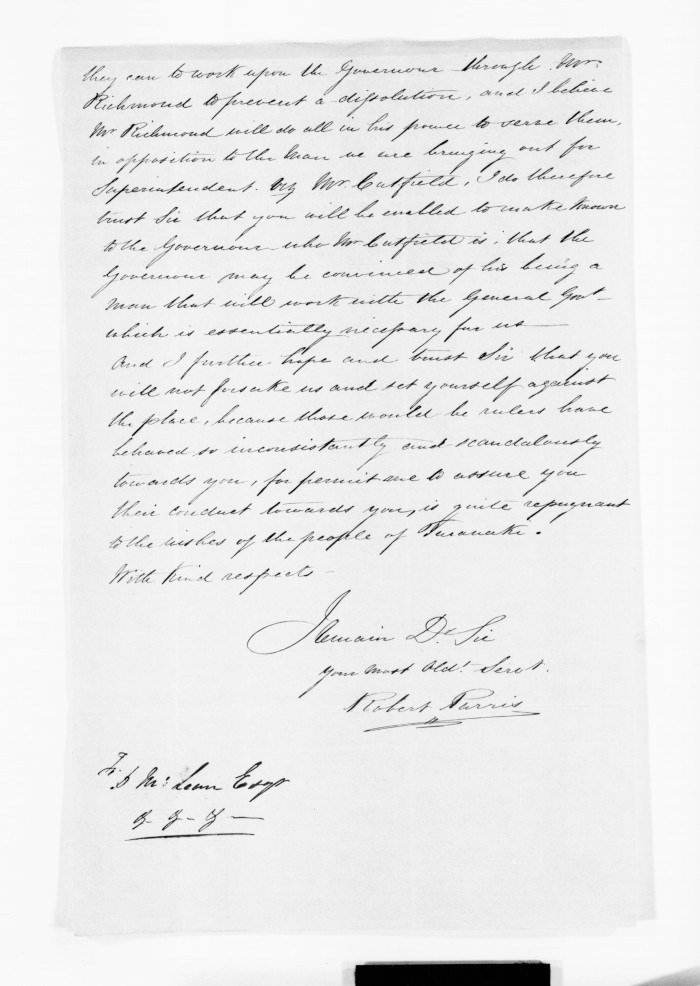 they can to work upon the Governour through Mr.
Richmond to prevent a dissolution, and I believe
Mr Richmond will do all in his power to serve them,
in opposition to the man we are bringing out for
Superintendent. viz Mr. Cutfield, I do therefore
trust Sir that you will be enabled to make known
to the Governour who Mr Cutfield is, that the
Governour may be convinced of his being a
man that will work with the General Govt
which is essentially necessary for us—
And I further hope and trust Sir that you
will not forsake us and set yourself against
the place, because those would be rulers have
behaved so inconsistantly and scandalously
towards you, for permit me to assure you
their conduct towards you, is quite repugnant
to the wishes of the people of Taranaki.
With Kind respects—
I remain Dr. Sir
your most Obdt. Servt.
Robert Parris
D Mc Lean Esqr
&- &- &-